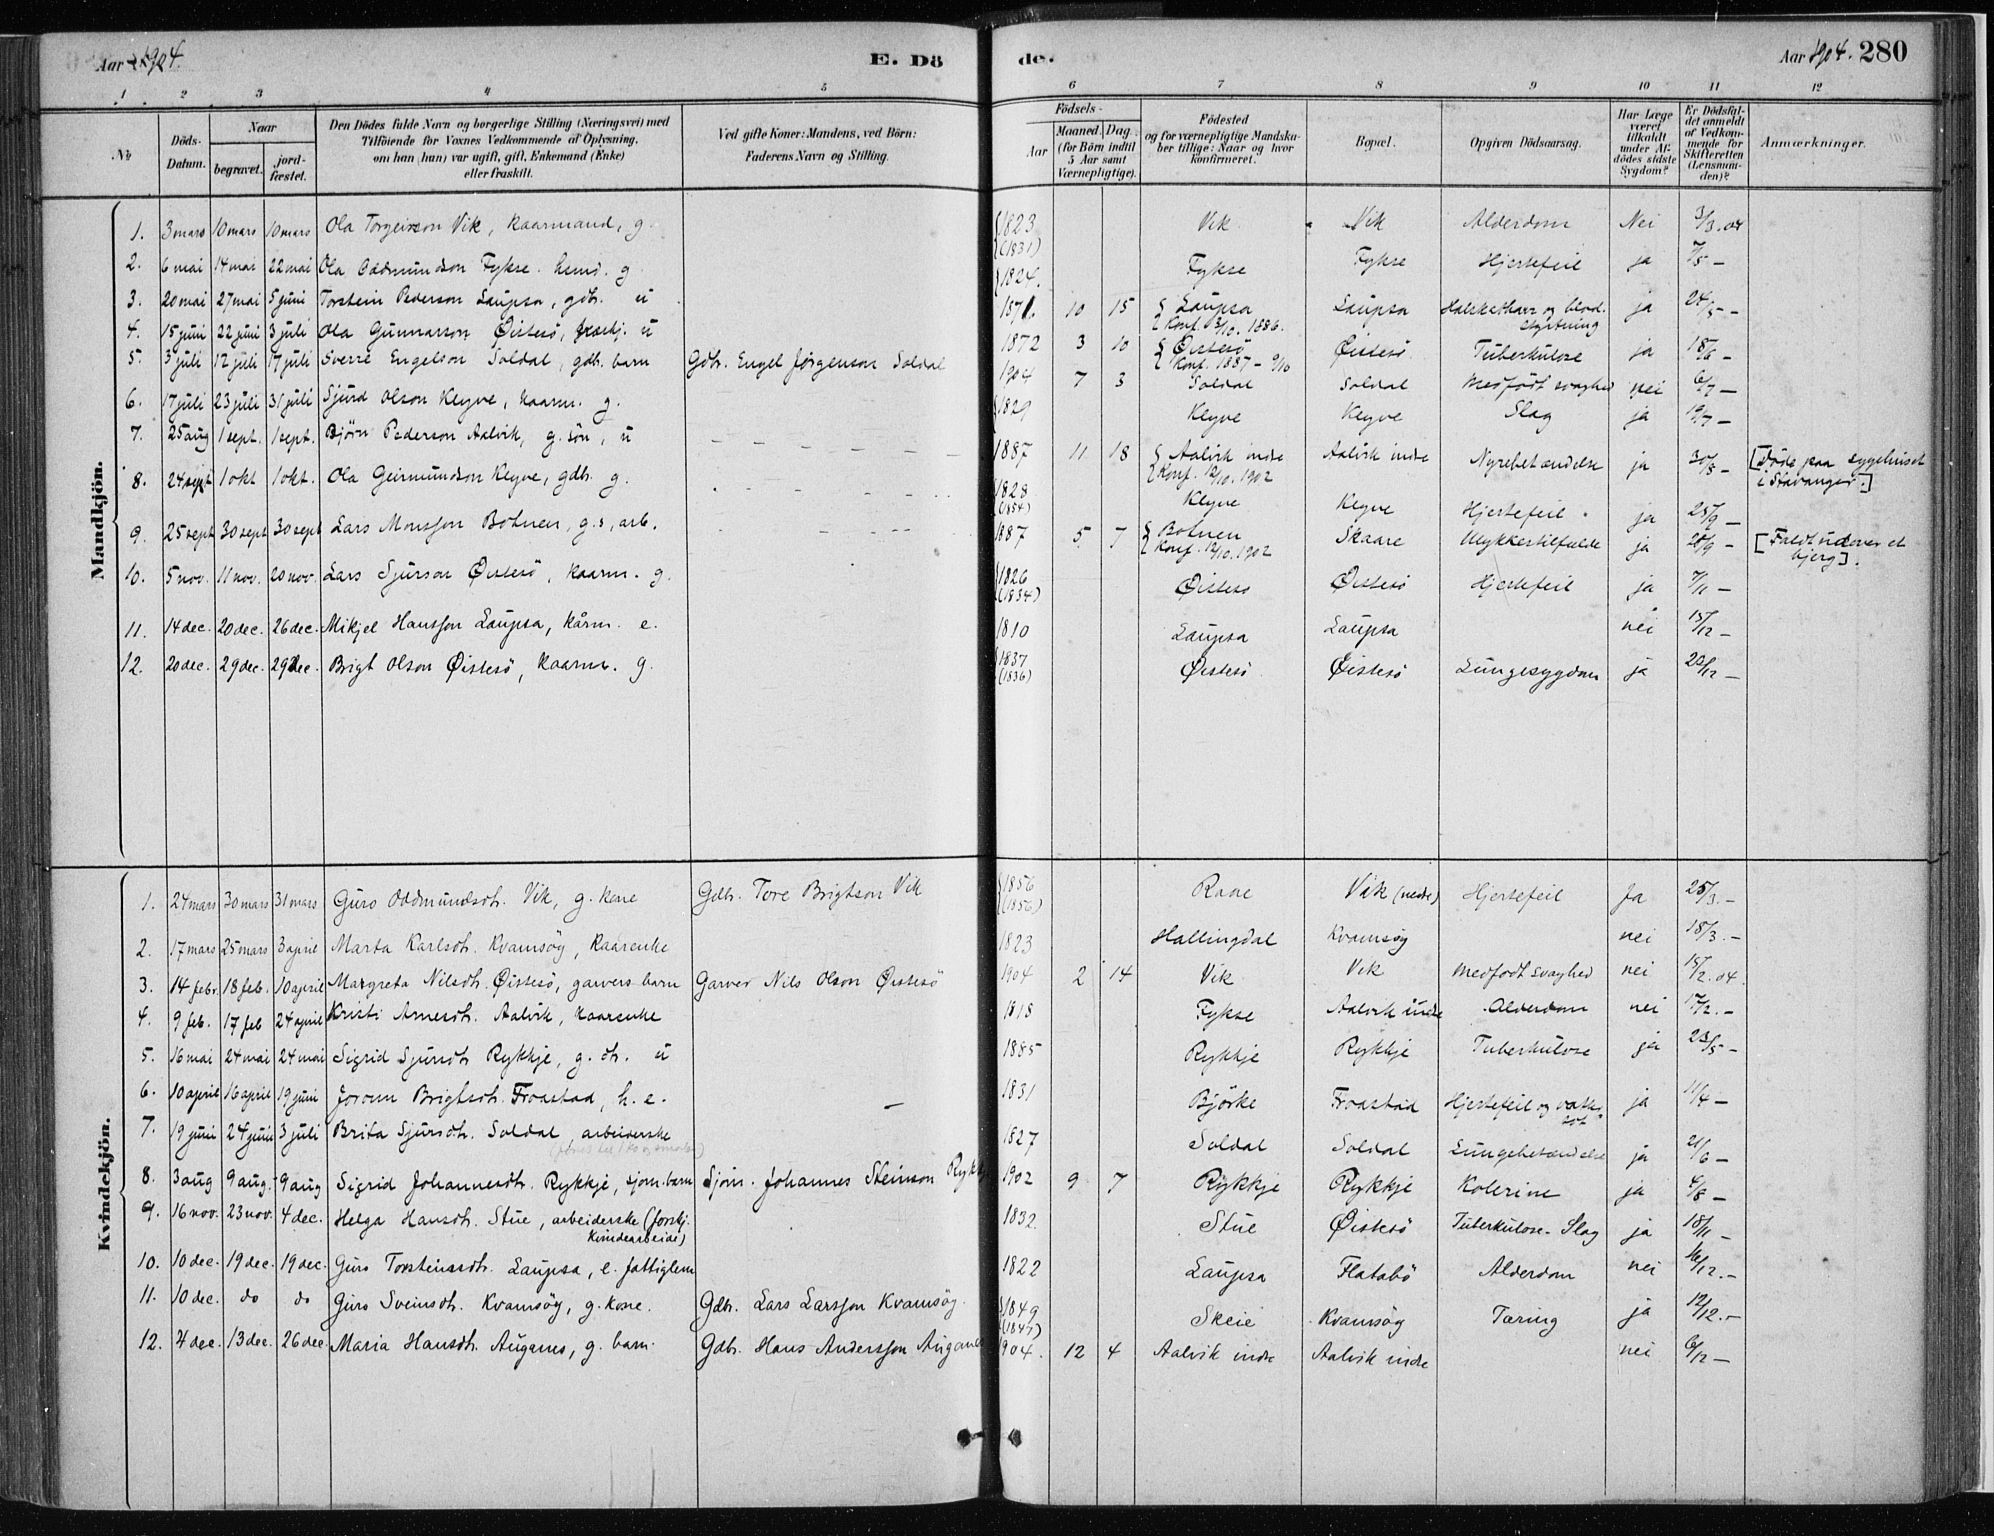 Aar 1904.
E. Dö
de.
Aar 1904. 280
1. 2 3 4 5 6 7 8 9 10 11 12
No
Döds-Datum.
Naar
begravet.
jord-fæstet.
Den Dödes fulde Navn og borgerlige Stilling (Næringsvei) med
Tilföiende for Voxnes Vedkommende af Oplysning,
om han (hun) var ugift, gift, Enkemand (Enke)
eller fraskilt.
Ved gifte Koner: Mandens, ved Börn:
Faderens Navn og Stilling.
Födsels-
Aar
Maaned. Dag.
(for Börn indtil
5 Aar samt
Værnepligtige).
Födested
og for værnepligtige Mandska-
ber tillige: Naar og hvor
konfirmeret.
Bopæl.
Opgiven Dödsaarsag.
Har Læge
været
tilkaldt
under Af-
dödes sidste
Sygdom?
Er Dödsfal-
det anmeldt
af Vedkom-
mende for
Skifteretten
(Lensman-
den)?
Anmærkninger.
Mandkjön.
1. 3 mars 10 mars 10 mars Ola Torgeirson Vik, kaarmand, g. 1823 (1831) Vik Vik Alderdom Nei 3/3.04
2. 6 mai 14 mai 22 mai Ola Oddmundson Fykse. husd. g. 1824. Fykse Fykse Hjertefeil ja 7/5 –
3. 20 mai 27 mai 5 juni Torstein Pederson Laupsa, gdb. u 1871. 10 15 Laupsa Laupsa Halskatharr og blod-
Konf. 3/10. 1886. styrtning ja 24/5 –
4. 15 juni 22 juni 3 juli Ola Gunnarson Øistesö, u 1872 3 10 Øistesö Øistesö. Tuberkulose ja 18/6 –
Konf. 1887 – 9/10
5. 3 juli 12 juli 17 juli Sverre Engelson Soldal, gdb. barn Gdbr. Engel Jørgenson Soldal 1904 7 3 Soldal Soldal Medfödt svaghed nei 6/7 –
6. 17 juli 23 juli 31 juli Sjurd Olson Klyve, kaarm. g. 1829 Klyve Klyve Slag ja 19/7 –
7. 25 aug 1 sept. 1 sept. Bjørn Pederson Aalvik, g. sön, u 1887 11 18 Aalvik indre Aalvik indre Nyrebetændelse ja 30/8 – [Døde paa sygehuset
Konf. 12/10. 1902 i Stavanger.]
8. 24 sept 1 okt 1 okt. Ola Geirmundson Klyve, gdb. g. 1828 (1854) Klyve Klyve Hjertefeil ja 25/9 –
9. 25 sept 30 sept 30 sept Lars Monsson Botnen, g.s, arb. 1887 5 7 Botnen Skaare Ulykkestilfælde ja 28/9 – [Faldt udover et
Konf. 12/10. 1902 bjerg].
10. 5 nov. 11 nov. 20 nov. Lars Sjurson Øistesö, kaarm. g. 1826 (1834) Øisteso Øistesö Hjertefeil ja 7/11 –
11. 14 dec. 20 dec. 26 dec. Mikjel Hansson Laupsa, kårm. e. 1810 Laupsa Laupsa nei 15/12 –
12. 20 dec. 29 dec. 29 dec. Brigt Olson Øistesö, kaarm. g. 1837 (1836) Øistesö Øistesö Lungesygdom ja 22/12 –
Kvindekjön.
1. 24 mars 30 mars 31 mars Guro Oddmundsdt. Vik, g. kone Gdb. Tore Brigtson Vik 1856 (1856) Raae Vik (nedre) Hjertefeil Ja 25/3. –
2. 17 mars 25 mars 3 april Marta Karlsdt. Kvamsöy, kaarenke 1823 Hallingdal Kvamsöy nei 18/3. –
3. 14 febr. 18 feb. 10 april Margreta Nilsdt. Øistesö, garvers barn Garver Nils Olson Øistesö 1904 2 14 Vik Vik Medfödt svaghed nei 15/2. 04.
4. 9 feb. 17 feb 24 april Kristi Arnesdt. Aalvik, kaarenke 1818 Fykse Aalvik indre Alderdom nei 17/2. –
5. 16 mai 24 mai 24 mai Sigrid Sjursdt. Rykkje, g. dt. u 1885 Rykkje Rykkje Tuberkulose ja 23/5 –
6. 10 april 16 april 19 juni Jorunn Brigtsdt. Froastad, h. e. 1831 Björke Froastad Hjertefeil og ja 11/4 –
7. 19 juni 24 juni 3 juli Brita Sjursdt. Soldal, arbeiderske 1827 Soldal Soldal Lungebetændelse ja 21/6 –
8. 3 aug 9 aug. 9 aug Sigrid Johannesdt. Rykkje, sjom. barn Sjom. Johannes Steinson Rykkje 1902 9 7 Rykkje Rykkje Kolerine ja 6/8 –
9. 16 nov. 23 nov. 4 dec. Helga Hansdt. Stue, arbeiderske (forskj.
kvindearbeide) 1832. Stue Øistesö Tuberkulose. Slag ja 18/11 –
10. 10 dec. 19 dec. 19 dec. Guro Torsteinsdt. Laupsa, e. fattiglem 1822 Laupsa Flatabö Alderdom nei 16/12. –
11. 10 dec. do do Guro Sveinsdt. Kvamsöy, g. kone. Gdb. Lars Larsson Kvamsöy. 1849 (1847) Skeie Kvamsöy Tæring ja 12/12. –
12. 4 dec. 13 dec. 26 dec. Maria Hansdt. Auganes, g. barn. Gdb. Hans Andersson Auganes 1904. 12 4 Aalvik indre Aalvik indre nei 6/12 –